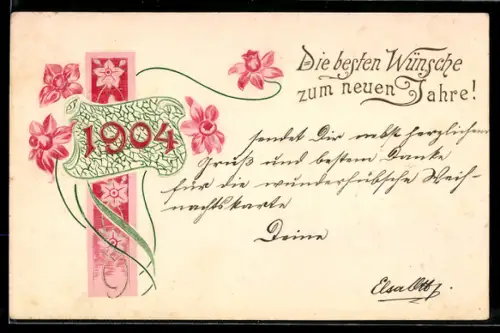 Die besten Wünsche
zum neuen Jahre!
1904
sendet Dir nebst herzlichem
Gruß und bestem Danke
für die wunderhübsche Weih-
nachtskarte
Deine
Elsa Ott